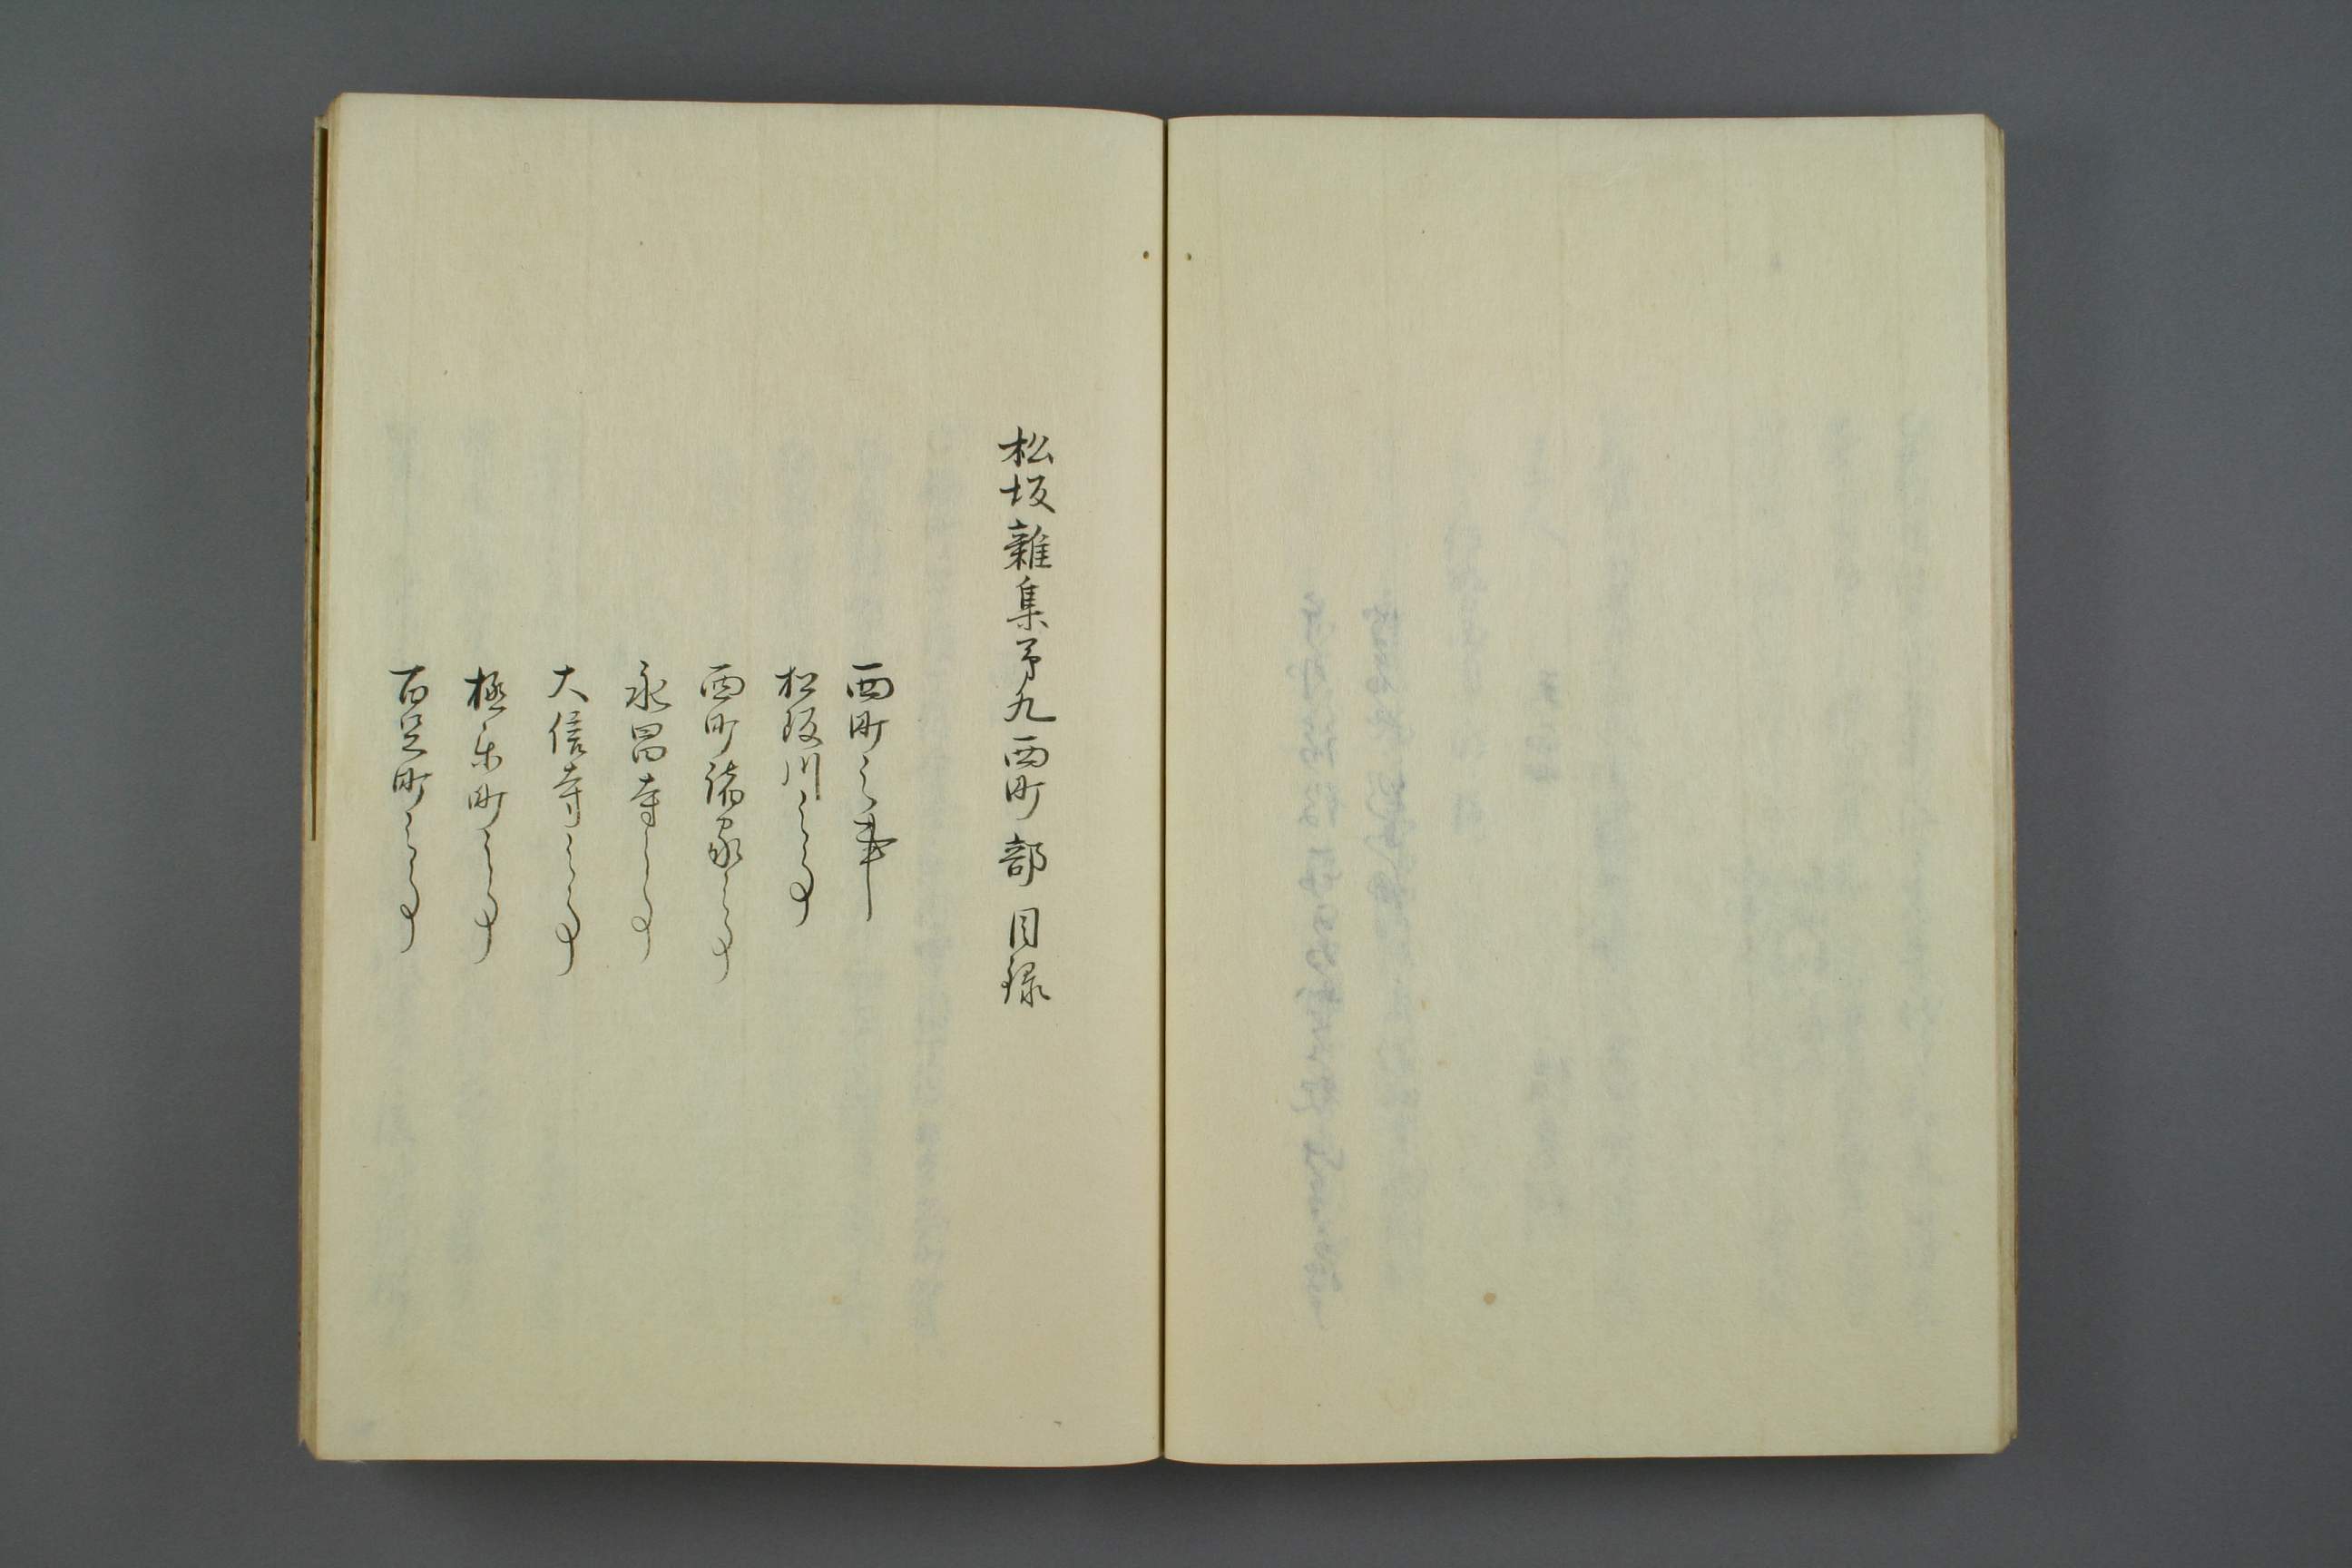 松坂雜集㐧九西町部目録
西町之事
松阪川之事
西町諸家之事
永昌寺之事
大信寺之事
極楽町之事
百足町之事